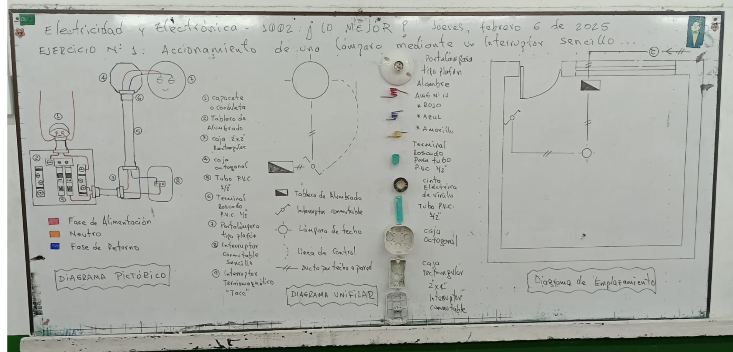 Electricidad y Electrónica - 1002 ¡ LO MEJOR ! Jueves, febrero 6 de 2025
EJERCICIO N° 1: Accionamiento de una lámpara mediante un Interruptor sencillo...
① capacete
o conduleta
② Tablero de
Alumbrado
③ caja 2x2
Rectangular
④ caja
octogonal
⑤ Tubo P.V.C.
1/2"
⑥ Terminal
Roscado
P.V.C. 1/2
⑦ Portalámpara
tipo plafón
⑧ Interruptor
Conmutable
Sencillo
⑨ Interruptor
Termomagnético
"Taco"
Fase de Alimentación
Neutro
Fase de Retorno
DIAGRAMA PICTÓRICO
Tablero de Alumbrado
Interruptor conmutable
Lámpara de techo
Línea de Control
Ducto por techo o pared
DIAGRAMA UNIFILAR
Portalámpara
tipo plafón
Alambre
AWG N° 12
* ROJO
* AZUL
* Amarillo
Terminal
Roscado
Para tubo
P.V.C. 1/2"
cinta
Eléctrica
de vinilo
Tubo P.V.C.
1/2"
caja
octogonal
caja
rectangular
Interruptor
conmutable
Diagrama de Emplazamiento